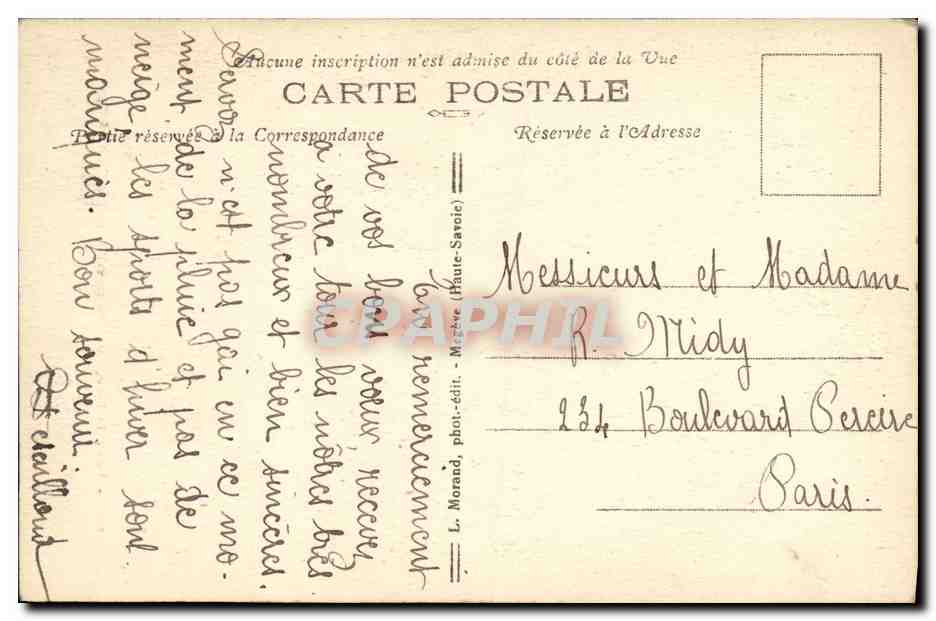 Aucune inscription n'est admise du côté de la Vue
CARTE POSTALE
Partie réservée à la Correspondance
Réservée à l'Adresse
En remerciement
de vos bons vœux recevez
à votre tour les nôtres très
nombreux et bien sincères.
Servoz n'est pas gai en ce mo-
ment de la pluie et pas de
neige les sports d'hiver sont
manqués. Bon souvenir
L. Morand, phot.-édit. - Megève (Haute-Savoie)
Messieurs et Madame
R. Midy
234 Boulevard Pereire
Paris.
CPAPHIL